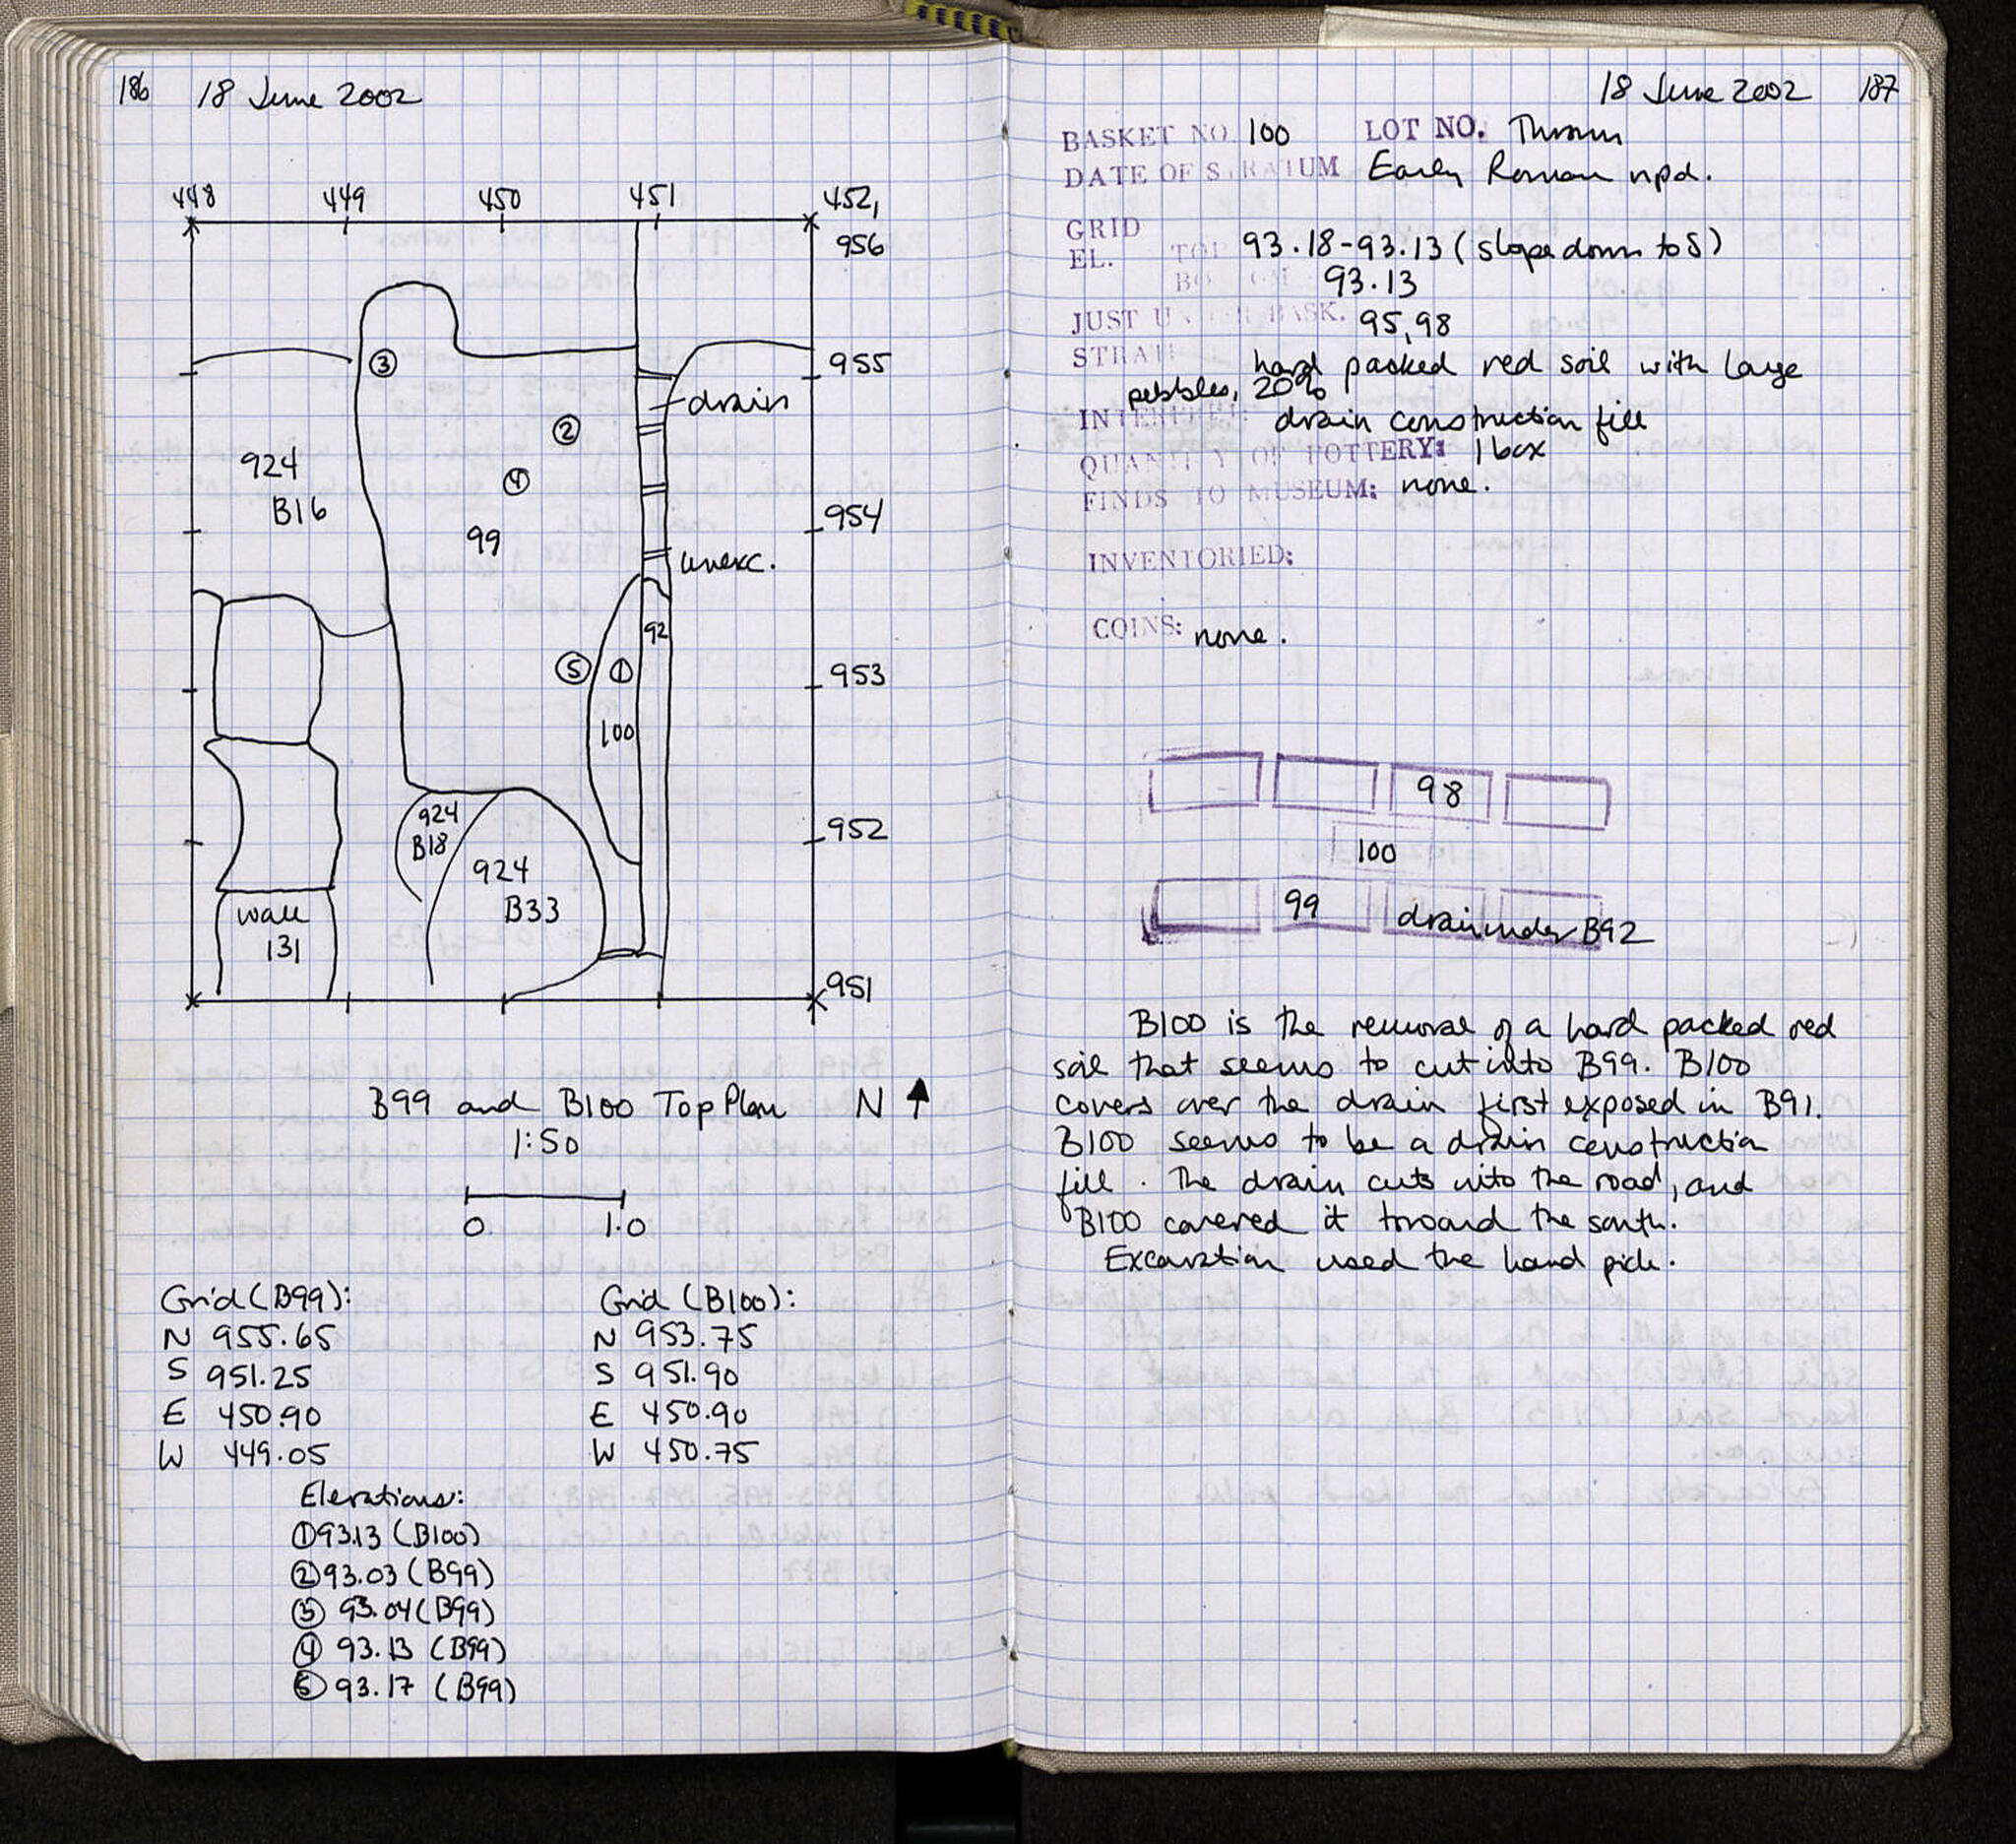 186 18 June 2002
448 449 450 451 452,
956
3
955
drain
2
924
B16
4
954
99
unexc.
92
5 1
953
100
924
B18
952
924
B33
wall
131
951
B99 and B100 Top Plan N
1:50
0 1.0
Grid (B99):
N 955.65
S 951.25
E 450.90
W 449.05
Grid (B100):
N 953.75
S 951.90
E 450.90
W 450.75
Elevations:
① 93.13 (B100)
② 93.03 (B99)
③ 93.04 (B99)
④ 93.13 (B99)
⑤ 93.17 (B99)
18 June 2002 187
BASKET NO. 100 LOT NO. Thrown
DATE OF STRATUM Early Roman npd.
GRID
EL. TOP 93.18-93.13 (slope down to S)
BOTTOM: 93.13
JUST UNDER BASK. 95,98
STRAT hard packed red soil with large
pebbles, 20%
INTERPRET: drain construction fill
QUANTITY OF POTTERY: 1 box
FINDS TO MUSEUM: none.
INVENTORIED:
COINS: none.
98
100
99 drain under B92
B100 is the removal of a hard packed red
soil that seems to cut into B99. B100
covers over the drain first exposed in B91.
B100 seems to be a drain construction
fill. The drain cuts into the road, and
B100 covered it toward the south.
Excavation used the hand pick.